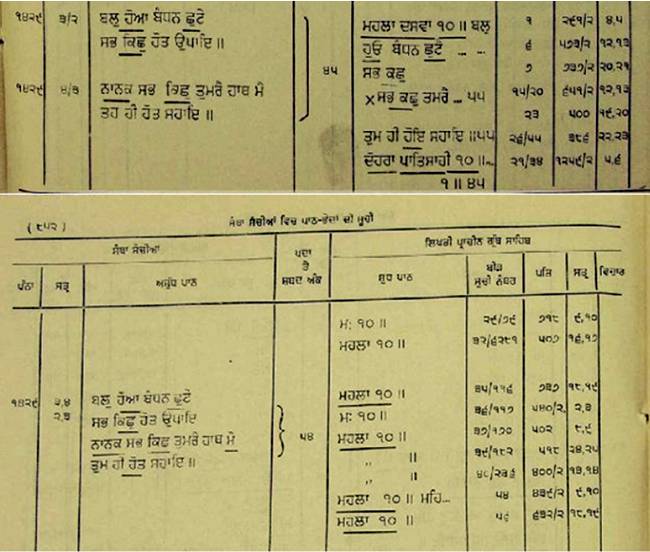 ੧੪੨੯ ੩/੨ ਬਲੁ ਹੋਆ ਬੰਧਨ ਛੁਟੇ ਮਹਲਾ ਦਸਵਾ ੧੦ ॥ ਬਲੁ ੧ ੨੯੧/੨ ੪,੫
ਸਭ ਕਿਛੁ ਹੋਤ ਉਪਾਇ ॥ ਹੁਓ ਬੰਧਨ ਛੁਟੇ ... ... ੬ ੫੭੩/੨ ੧੨,੧੩
੪੫ ਸਭ ਕਛੁ ੭ ੭੩੭/੨ ੨੦,੨੧
੧੪੨੯ ੪/੩ ਨਾਨਕ ਸਭ ਕਿਛੁ ਤੁਮਰੈ ਹਾਥ ਮੈ × ਸਭ ਕਛੁ ਤੁਮਰੈ ... ੫੫ ੧੫/੨੦ ੬੫੧/੨ ੧੨,੧੩
ਤਹ ਹੀ ਹੋਤ ਸਹਾਇ ॥ ੨੩ ੫੦੦ ੧੯,੨੦
ਤੁਮ ਹੀ ਹੋਇ ਸਹਾਇ ॥੫੫ ੨੬/੫੫ ੩੮੬ ੨੨,੨੩
ਦੋਹਰਾ ਪਾਤਿਸਾਹੀ ੧੦ ॥... ੨੧/੩੪ ੧੨੫੯/੨ ੫,੬
੧ ॥ ੪੫
( ੮੫੨ ) ਸੰਥਾ ਸੈਂਚੀਆਂ ਵਿਚ ਪਾਠ-ਭੇਦਾਂ ਦੀ ਸੂਚੀ
ਸੰਥਾ ਸੈਂਚੀਆਂ ਪਦਾ ਤੇ ਸ਼ਬਦ ਅੰਕ ਲਿਖਤੀ ਪ੍ਰਾਚੀਨ ਗ੍ਰੰਥ ਸਾਹਿਬ
ਪੰਨਾ ਸਤ੍ਰ ਅਸ਼ੁੱਧ ਪਾਠ ਸ਼ੁਧ ਪਾਠ ਬੀੜ ਸੂਚੀ ਨੰਬਰ ਪਤਿ ਸਤ੍ਰ ਵਿਚਾਰ
ਮ: ੧੦ ॥ ੨੯/੭੯ ੭੧੮ ੯,੧੦
ਮਹਲਾ ੧੦ ॥ ੩੨/੬੨੮੧ ੫੦੭ ੧੬,੧੭
ਮਹਲਾ ੧੦ ॥ ੩੫/੧੧੬ ੭੩੭ ੧੮,੧੯
੧੪੨੯ ੩,੪ ਬਲੁ ਹੋਆ ਬੰਧਨ ਛੁਟੇ ਮ: ੧੦ ॥ ੩੬/੧੧੭ ੫੪੦/੨ ੨,੩
੨,੩ ਸਭ ਕਿਛੁ ਹੋਤ ਉਪਾਇ ੫੪ ਮਹਲਾ ੧੦ ॥ ੩੭/੧੭੦ ੫੦੨ ੮,੯
ਨਾਨਕ ਸਭ ਕਿਛੁ ਤੁਮਰੈ ਹਾਥ ਮੈ ,, ॥ ੩੯/੧੮੨ ੫੧੮ ੨੪,੨੫
ਤੁਮ ਹੀ ਹੋਤ ਸਹਾਇ ॥ ,, ॥ ੪੦/੨੩੬ ੪੦੦/੨ ੧੩,੧੪
ਮਹਲਾ ੧੦ ॥ ਮਹਿ... ੫੪ ੪੩੯/੨ ੯,੧੦
ਮਹਲਾ ੧੦ ॥ ੫੬ ੬੩੨/੨ ੧੮,੧੯